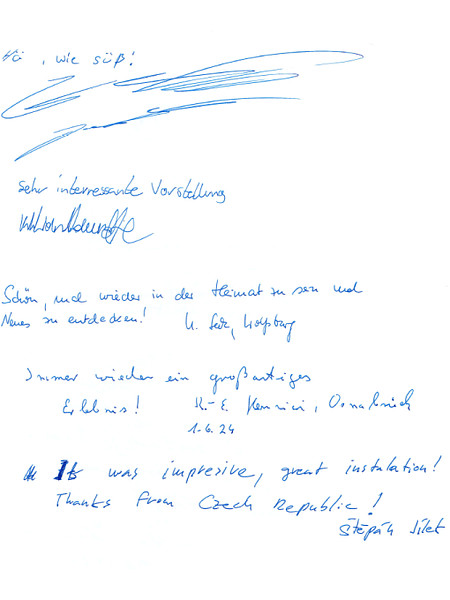 , wie süß!
sehr interressante Vorstellung
Schön, mal wieder in der Heimat zu sein und
Neues zu entdecken! Wolfsburg
Immer wieder ein großartiges
Erlebnis! K.-E. Henrici, Osnabrück
1.6.24
It was impresive, great instalation!
Thanks from Czech Republic!
Štěpán